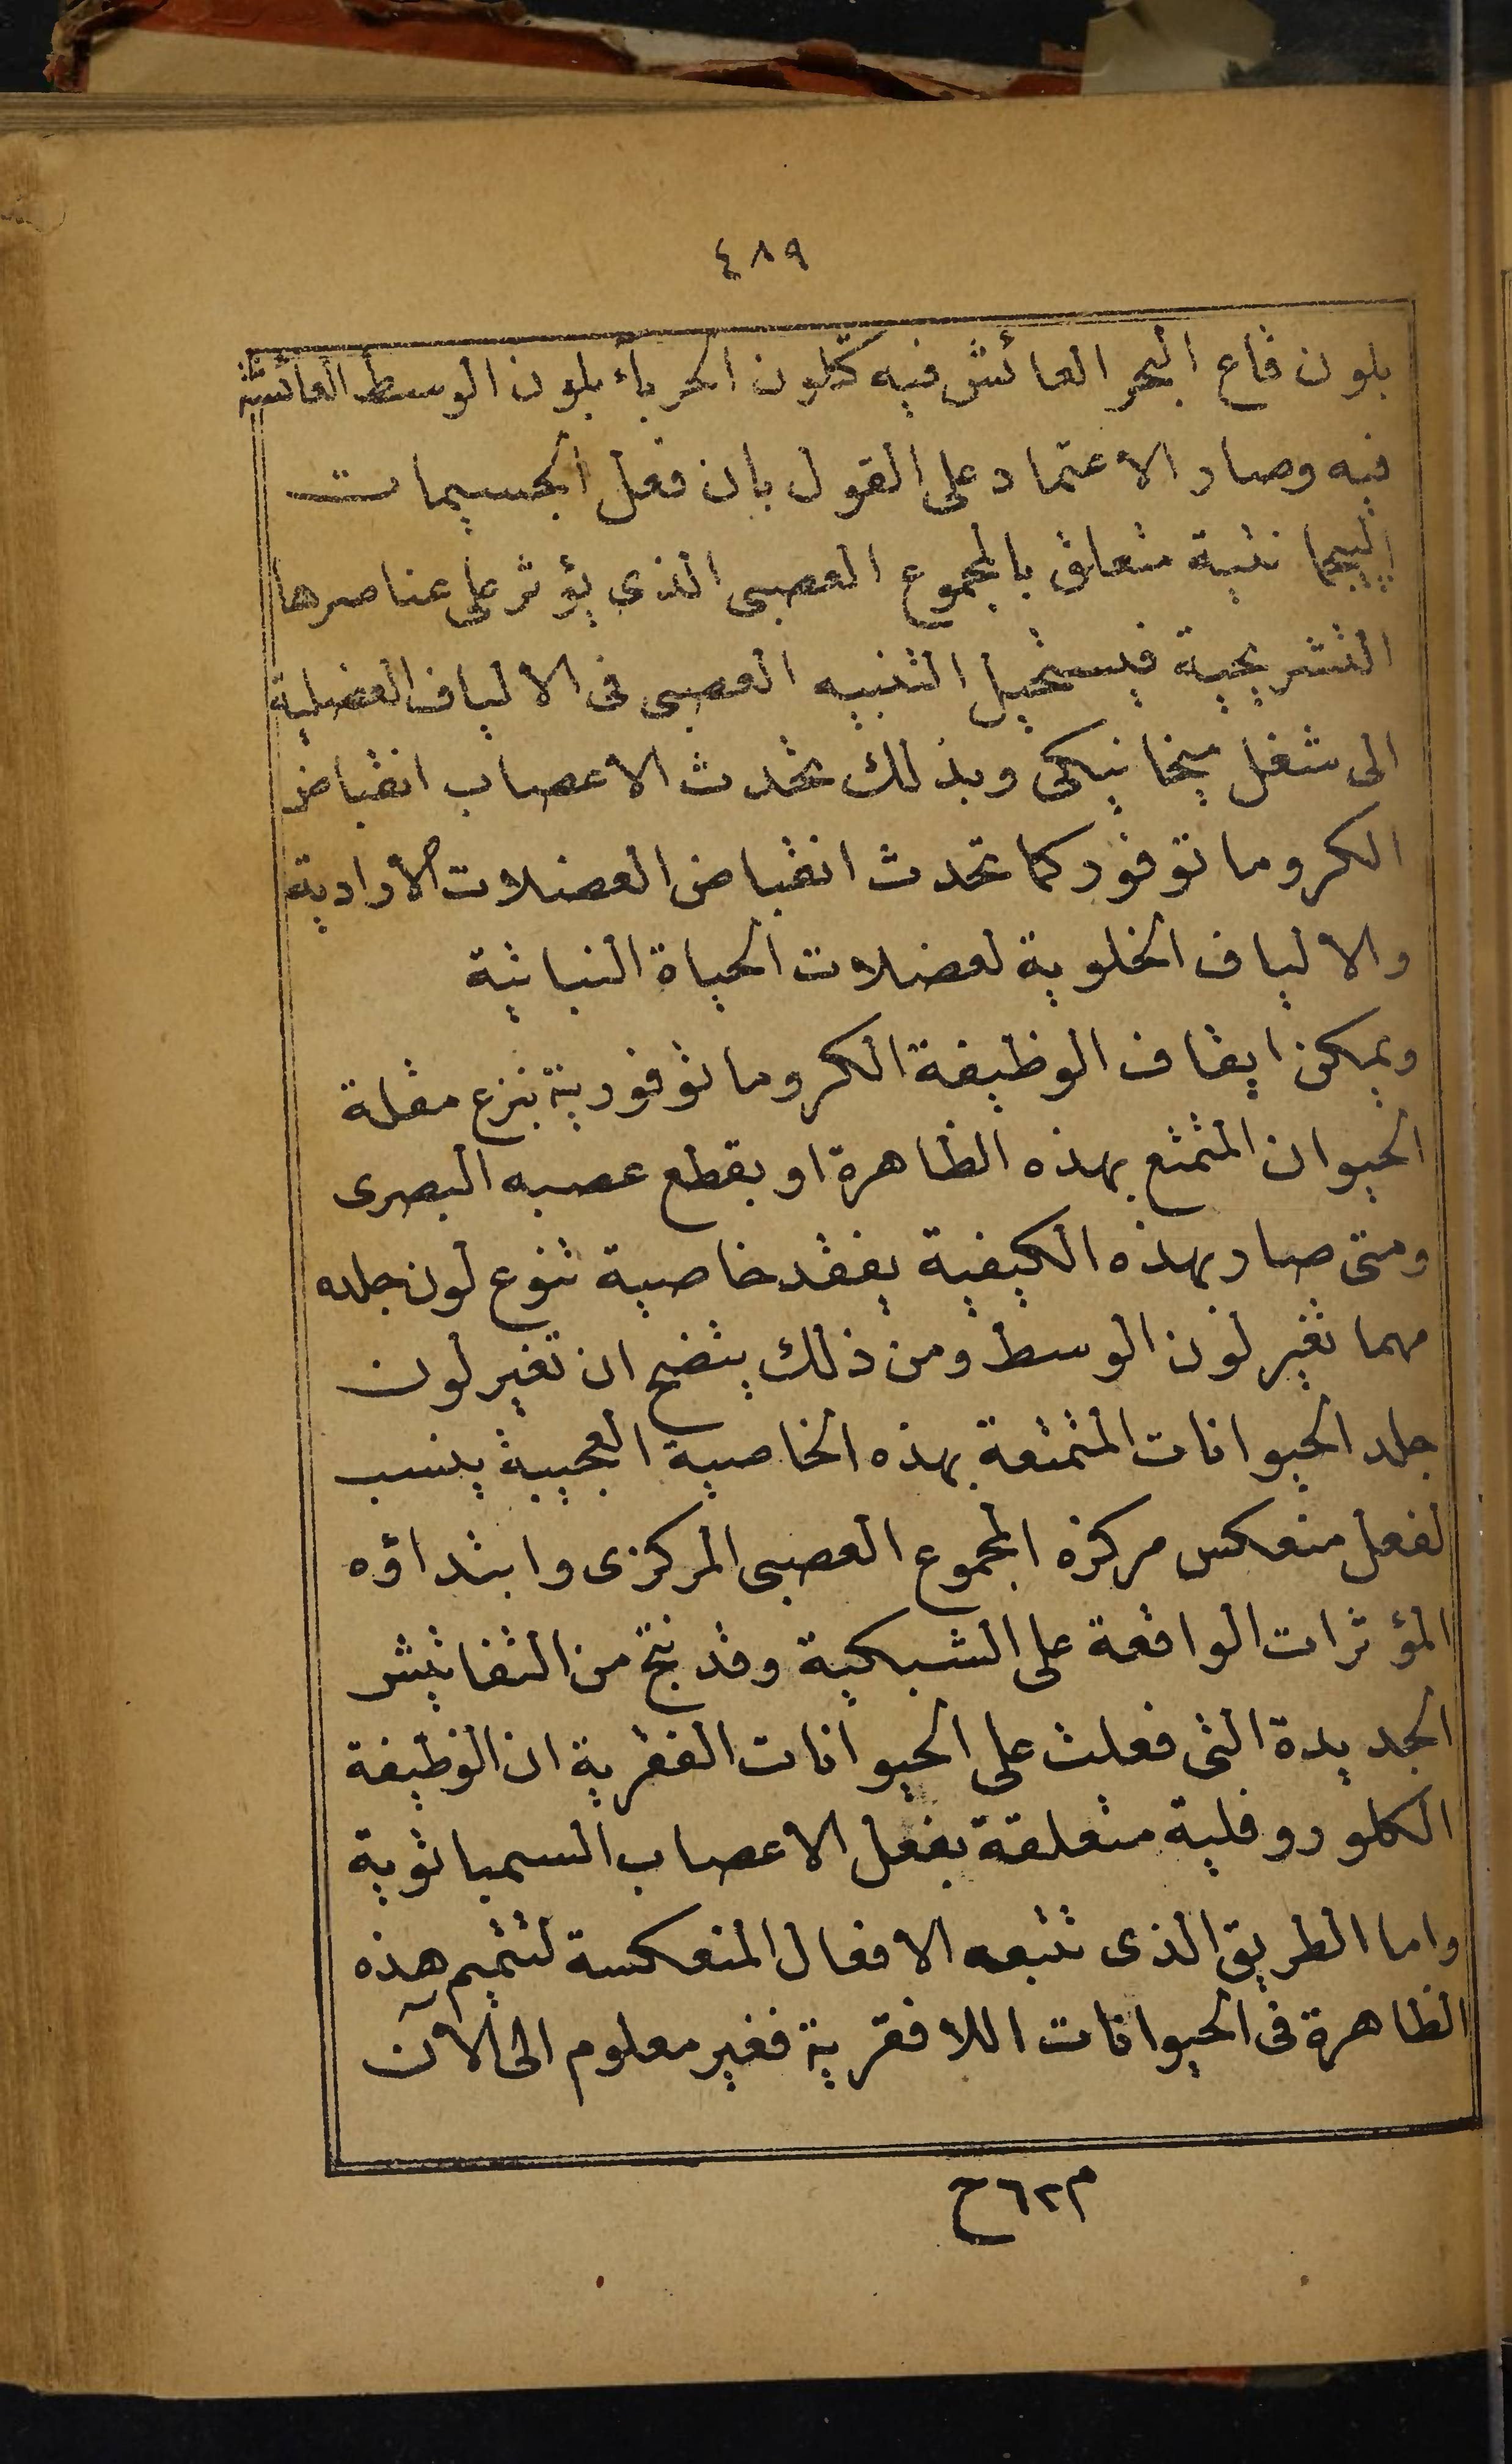 ٤٨٩
بلون قاع البحر العائش فيه كتلون الحرباء بلون الوسط العائشة
فيه وصار الاعتماد على القول بان فعل الجسيمات
البيجما نتية متعلق بالمجموع العصبى الذى يؤثر على عناصرها
التشريحية فيستحيل التنبيه العصبى فى الالياف العضلية
الى شغل ميخانيكى وبذلك تحدث الاعصاب انقباض
الكروماتوفور كما تحدث انقباض العضلات الارادية
والالياف الخلوية لعضلات الحياة النباتية
ويمكن ايقاف الوظيفة الكروماتوفورية بنزع مقلة
الحيوان المتمتع بهذه الظاهرة او بقطع عصبه البصرى
ومتى صار بهذه الكيفية يفقد خاصية تنوع لون جلده
مهما تغير لون الوسط ومن ذلك يتضح ان تغير لون
جلد الحيوانات المتمتعة بهذه الخاصية العجيبة ينسب
لفعل منعكس مركزه المجموع العصبى المركزى وابتداؤه
المؤثرات الواقعة على الشبكية وقد نتج من التفاتيش
الجديدة التى فعلت على الحيوانات الفقرية ان الوظيفة
الكلوروفلية متعلقة بفعل الاعصاب السمباثوية
واما الطريق الذى تتبعه الافعال المنعكسة لتتميم هذه
الظاهرة فى الحيوانات اللافقرية فغير معلوم الى الآن
م ٦٢ ح